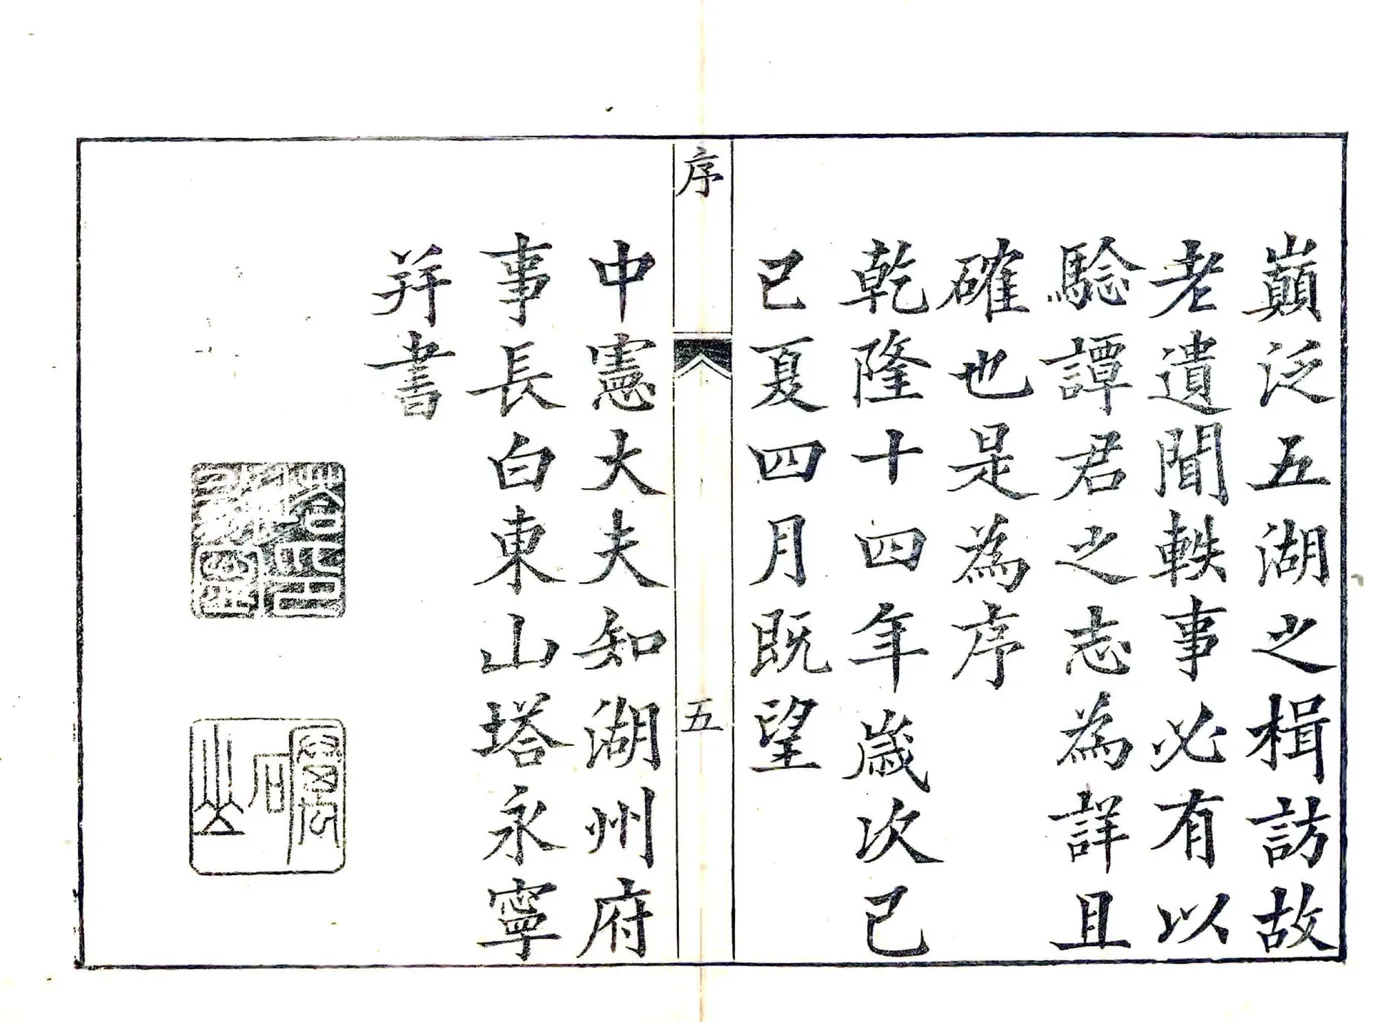 巔泛五湖之楫訪故
老遺聞軼事必有以
騐譚君之志為詳且
確也是為序
乾隆十四年歲次己
巳夏四月既望
序
五
中憲大夫知湖州府
事長白東山塔永寧
并書